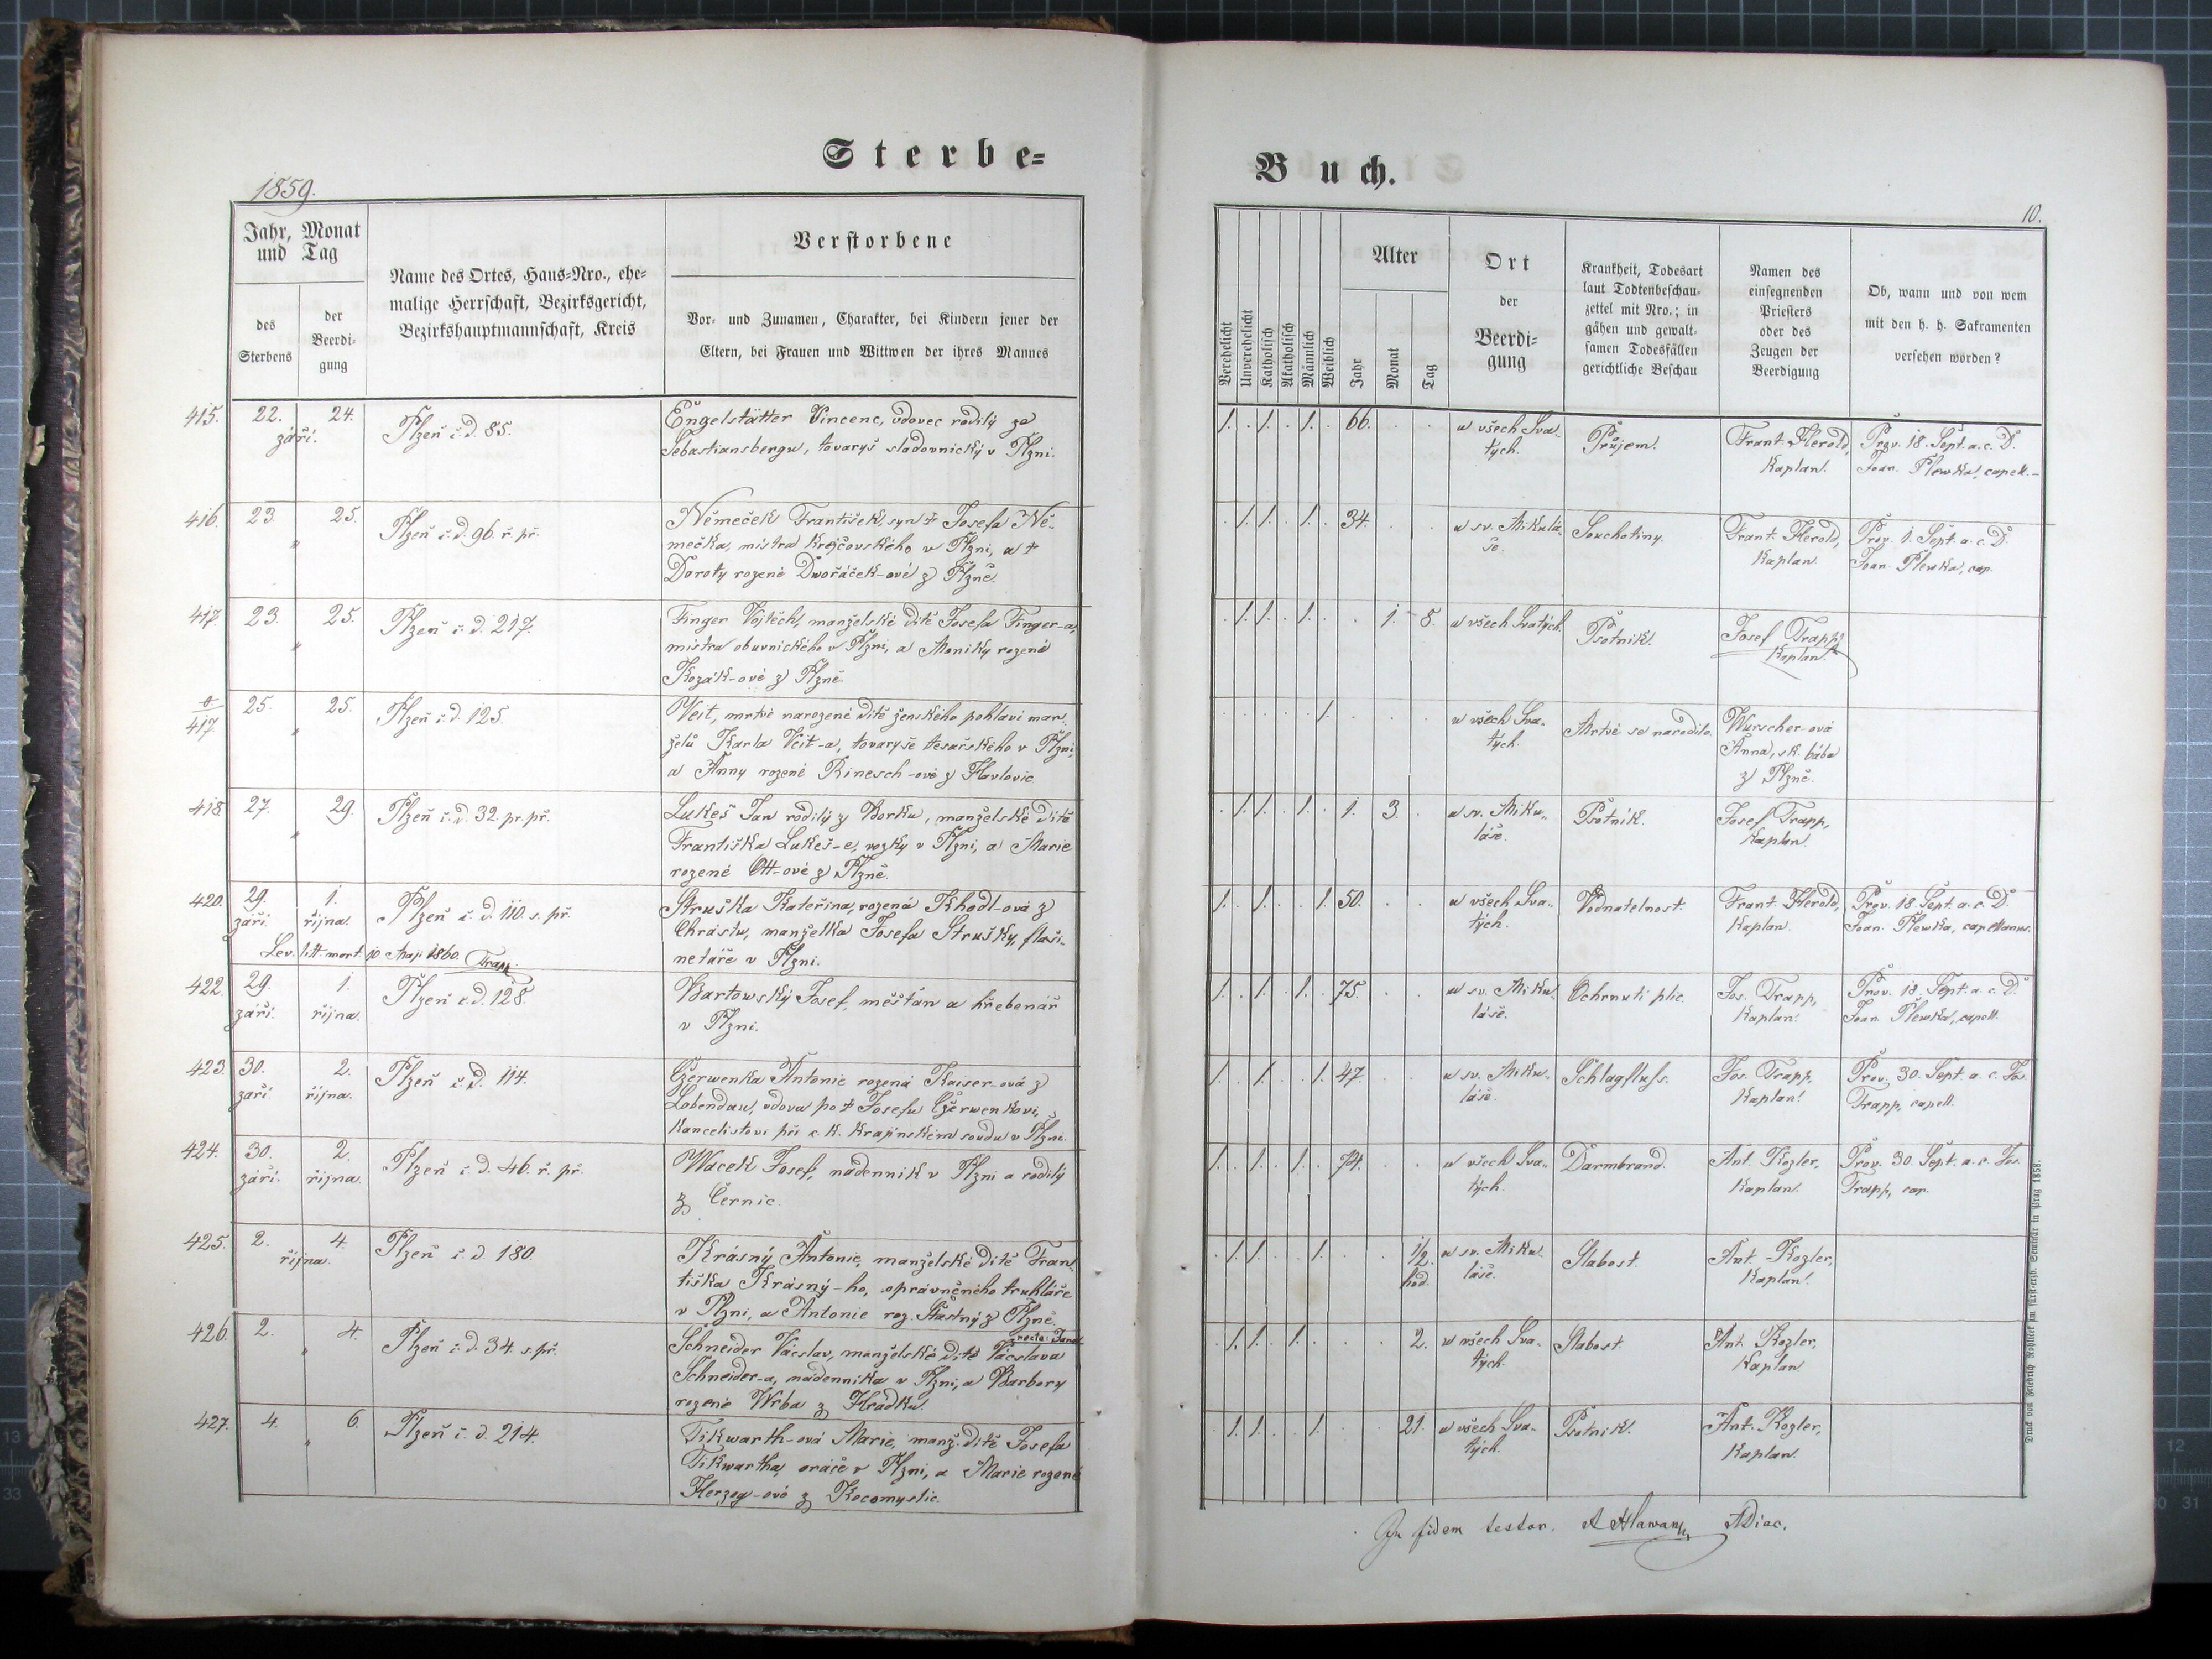 Sterbe=
1859.
Jahr, Monat
und Tag
des
Sterbens
der
Beerdi-
gung
Name des Ortes, Haus=Nro., ehe=
malige Herrschaft, Bezirksgericht,
Bezirkshauptmannschaft, Kreis
Verstorbene
Vor- und Zunamen, Charakter, bei Kindern jener der
Eltern, bei Frauen und Wittwen der ihres Mannes
415. 22. 24. Plzeň č. d. 85. Engelstätter Vincenc, vdovec rodilý ze
září. Sebastiansbergu, tovaryš sladovnický v Plzni.
416. 23. 25. Plzeň č. d. 96. ř. př. Němeček František, syn † Josefa Ně-
" mečka, mistra krejčovského v Plzni, a †
Doroty rozené Dwořáček-ové z Plzně.
417. 23. 25. Plzeň č. d. 217. Finger Vojtěch, manželské dítě Josefa Finger-a,
" mistra obuvnického v Plzni, a Moniky rozené
Kozák-ové z Plzně.
417 25. 25. Plzeň č. d. 125. Veit, mrtvě narozené dítě ženského pohlaví man-
" želů Karla Veit-a, tovaryše tesařského v Plzni,
a Anny rozené Rinesch-ové z Havlovic
418 27. 29. Plzeň č. d. 32. pr. př. Lukeš Jan rodilý z Borku, manželské dítě
" Františka Lukeš-e, vozky v Plzni, a Marie
rozené Ott-ové z Plzně.
420. 29. 1. Plzeň č. d. 110. s. př. Struška Kateřina, rozená Khodl-ová z
září. října. Chrástu, manželka Josefa Strušky, flaši-
Lev. litt. mort. 10. Maji 1860. Trapp. netáře v Plzni.
422. 29. 1. Plzeň č. d. 128 Bartowský Josef, měšťan a hřebenář
září. října. v Plzni.
423. 30. 2. Plzeň č. d. 114. Czerwenka Antonie rozená Kaiser-ová z
září. října. Lobendau, vdova po † Josefu Czerwenkovi,
kancelistovi při c. k. krajinském soudu v Plzni.
424. 30. 2. Plzeň č. d. 46. ř. př. Wacek Josef, nádenník v Plzni a rodilý
září. října. z Černic.
425. 2. 4. Plzeň č. d. 180 Krásný Antonie, manželské dítě Fran-
října. tiška Krásný-ho, oprávněného truhláře
v Plzni, a Antonie roz. Šťastný z Plzně.
recte: Jana
426. 2. 4. Plzeň č. d. 34. s. př. Schneider Václav, manželské dítě Václava
" Schneider-a, nádenníka v Plzni, a Barbory
rozené Wrba z Hrádku.
427. 4. 6. Plzeň č. d. 214. Tikwarth-ová Marie, manž. dítě Josefa
" Tikwartha, oráče v Plzni, a Marie rozené
Herzog-ové z Kocomyslic.
Buch.
10.
Verehelicht
Unverehelicht
Katholisch
Akatholisch
Männlich
Weiblich
Alter
Jahr
Monat
Tag
Ort
der
Beerdi=
gung
Krankheit, Todesart
laut Todtenbeschau-
zettel mit Nro.; in
gähen und gewalt-
samen Todesfällen
gerichtliche Beschau
Namen des
einsegnenden
Priesters
oder des
Zeugen der
Beerdigung
Ob, wann und von wem
mit den h. h. Sakramenten
versehen worden?
1. . 1. . 1. . 66. . . u všech Sva- Průjem. Frant. Herold, Prov. 18. Sept. a. c. D.
tých. Kaplan. Joan. Plewka, capell.
. 1. 1. . 1. . 34. . . u sv. Mikulá- Souchotiny. Frant. Herold, Prov. 1. Sept. a. c. D.
še. Kaplan. Joan. Plewka, cap.
. 1. 1. . 1. . . 1. 8. u všech Svatých. Psotník. Josef Trapp,
Kaplan.
. . . . . 1. . . . u všech Sva- Mrtvé se narodilo. Wurscher-ová
tých. Anna, zk. bába
z Plzně.
. 1. 1. . 1. . 1. 3. . u sv. Miku- Psotník. Josef Trapp,
láše. Kaplan.
1. . 1. . . 1. 50. . . u všech Sva- Vodnatelnost. Frant. Herold, Prov. 18. Sept. a. c. D.
tých. Kaplan. Joan. Plewka, capellanus.
1. . 1. . 1. . 75. . . u sv. Miku- Ochrnutí plic. Jos. Trapp, Prov. 18. Sept. a. c. D.
láše. Kaplan. Joan. Plewka, capell.
1. . 1. . . 1. 47. . . u sv. Miku- Schlagfluß. Jos. Trapp, Prov. 30. Sept. a. c. Jos.
láše. Kaplan. Trapp, capell.
1. . 1. . 1. . 74. . . u všech Sva- Darmbrand. Ant. Kozler, Prov. 30. Sept. a. c. Jos.
tých. Kaplan. Trapp, cap.
. 1. 1. . . 1. . . 1/2 u sv. Miku- Slabost. Ant. Kozler,
hod. láše. Kaplan.
. 1. 1. . 1. . . . 2. u všech Sva- Slabost. Ant. Kozler,
tých. Kaplan
. 1. 1. . . 1. . . 21. u všech Sva- Psotník. Ant. Kozler,
tých. Kaplan.
In fidem testor.
Druck von Friedrich Rohliček im fürsterzb. Seminär in Prag 1858.